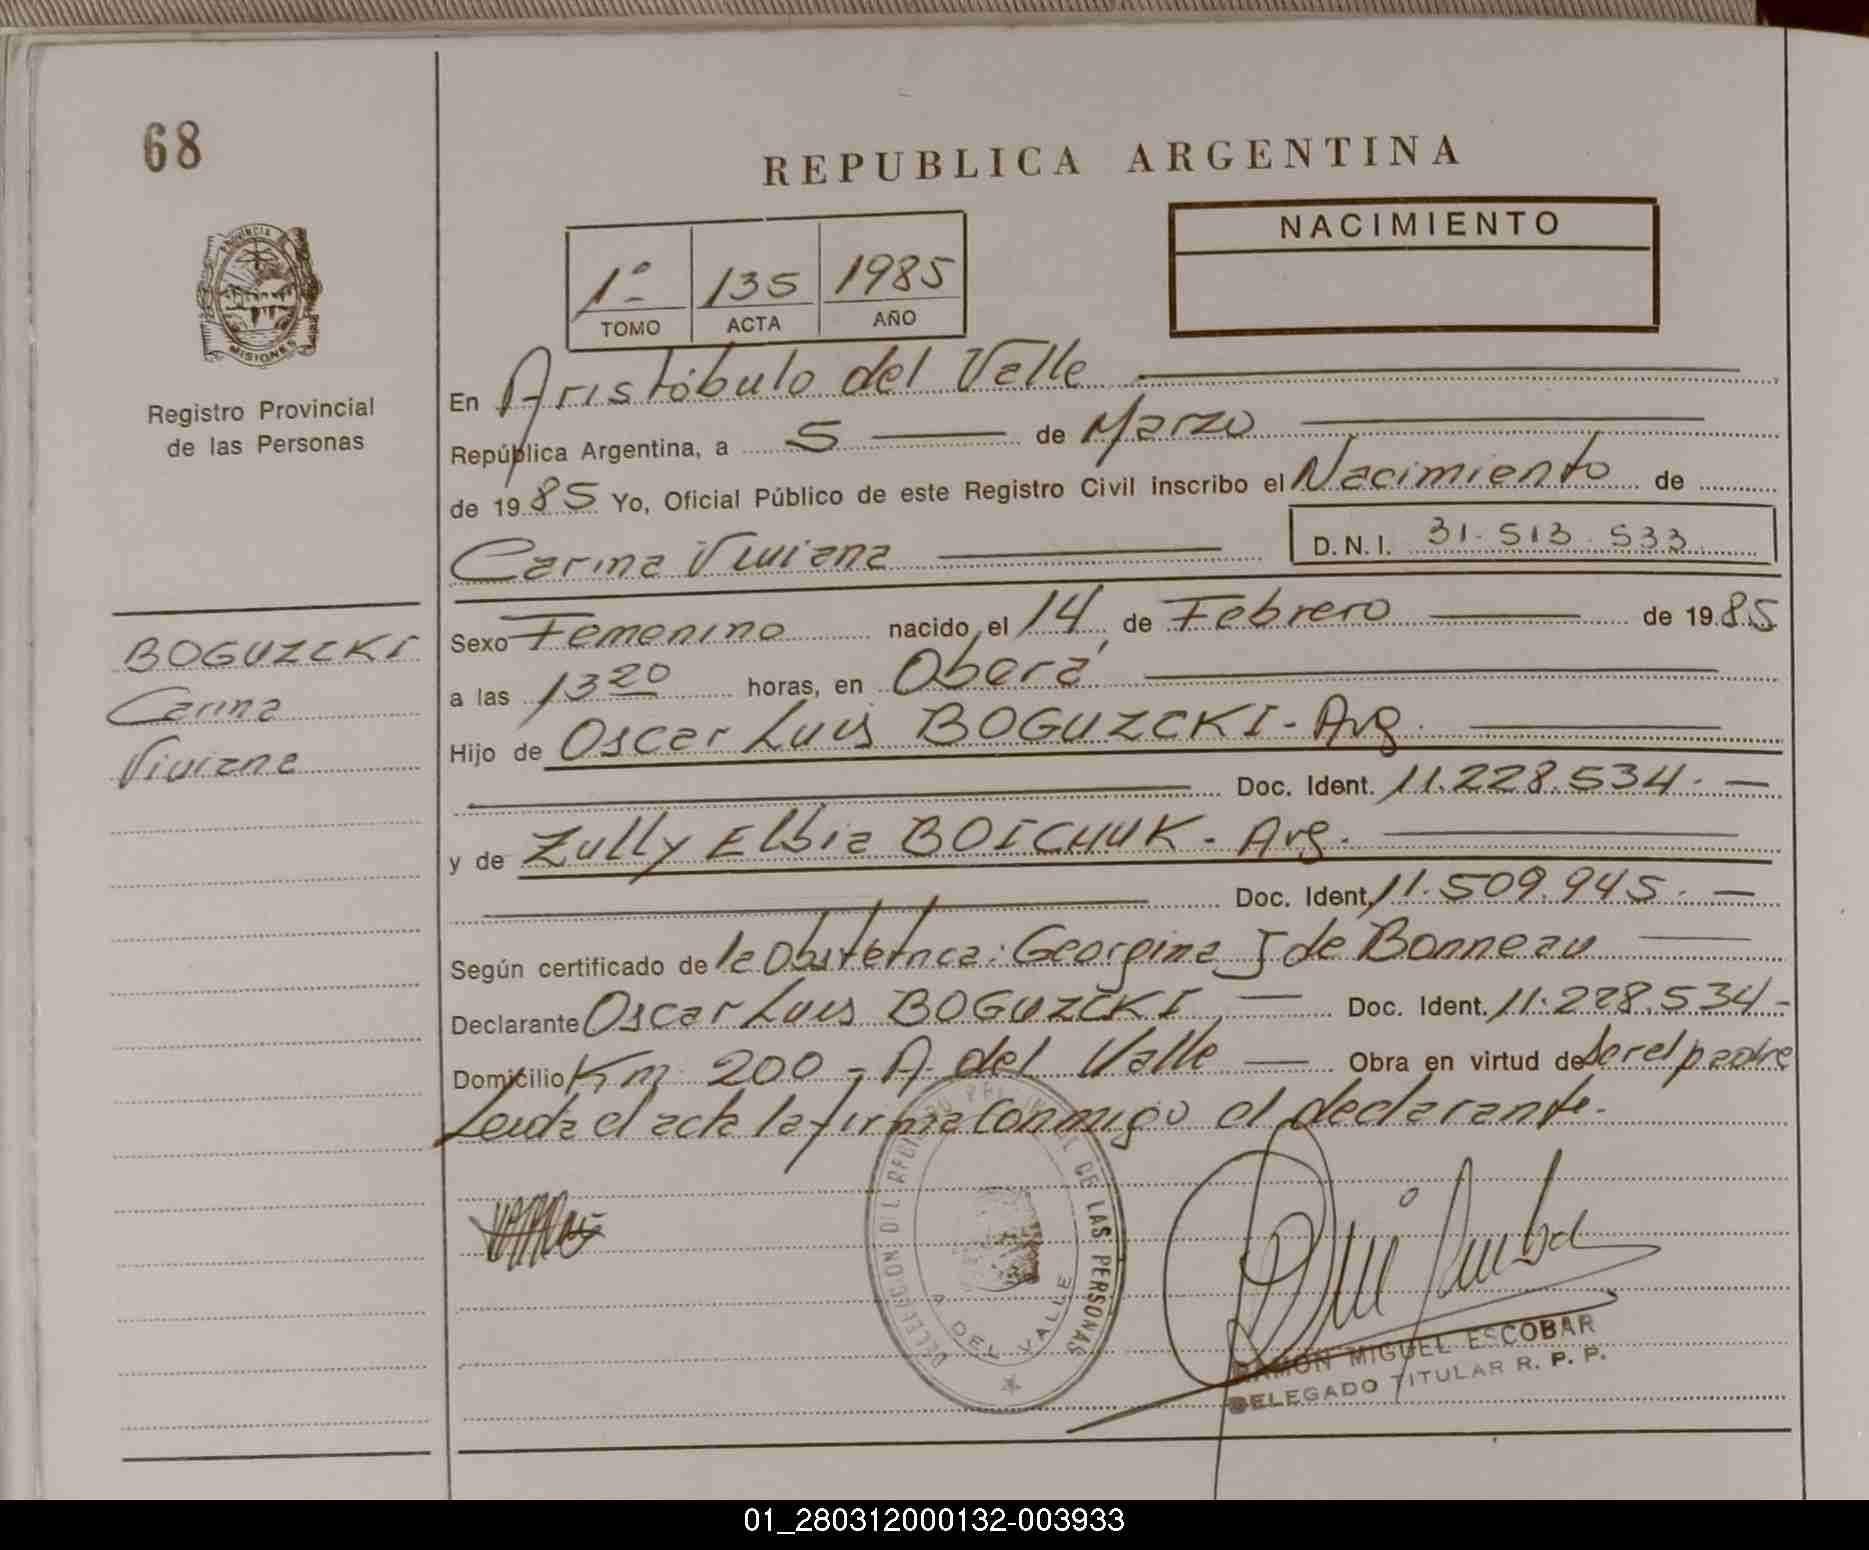 68
REPUBLICA ARGENTINA
NACIMIENTO
1º 135 1985
TOMO ACTA AÑO
PROVINCIA
MISIONES
Registro Provincial
de las Personas
En Aristóbulo del Valle
República Argentina, a 5 de Marzo
de 1985 Yo, Oficial Público de este Registro Civil inscribo el Nacimiento de
Carina Viviana D.N.I. 31.513.533
BOGUZCKI
Carina
Viviana
Sexo Femenino nacido el 14 de Febrero de 1985
a las 13 20 horas, en Oberá
Hijo de Oscar Luis BOGUZCKI - Arg.
Doc. Ident. 11.228.534.-
y de Zully Elbia BOICHUK - Arg.
Doc. Ident. 11.509.945.-
Según certificado de la Obstetrica: Georgina J de Bonneau
Declarante Oscar Luis BOGUZCKI Doc. Ident. 11.228.534-
Domicilio Km 200 - A. del Valle Obra en virtud de ser el padre
Leida el acta la firma conmigo el declarante.
DE LAS PERSONAS
A. DEL VALLE
RAMON MIGUEL ESCOBAR
DELEGADO TITULAR R. P. P.
01_280312000132-003933